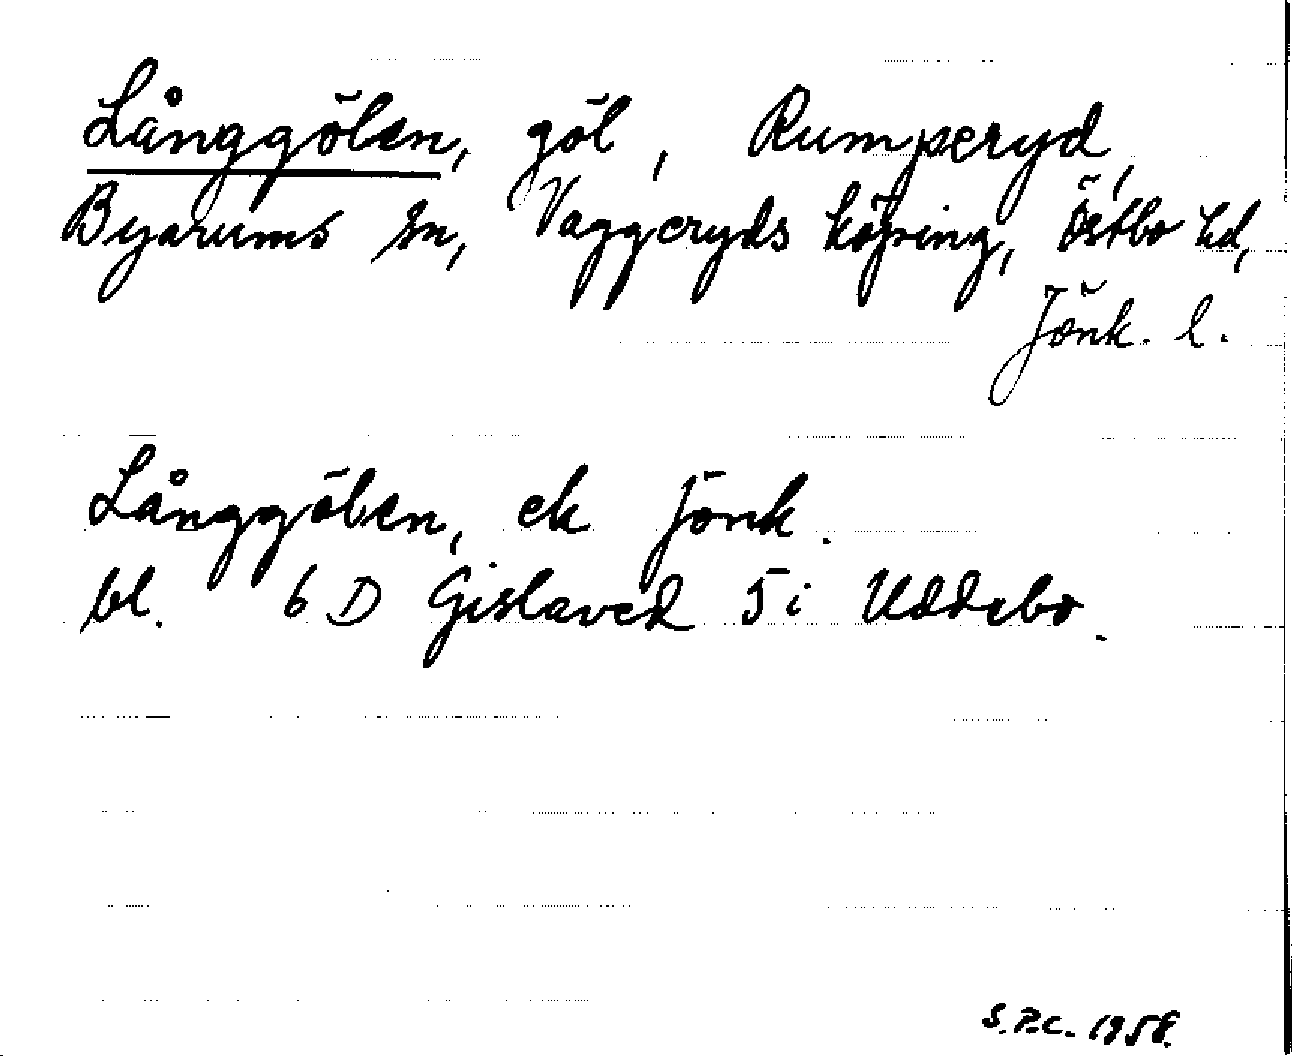 Långgölen, göl, Rumperyd,
Byarums sn, Vaggeryds köping, Östbo hd,
Jönk. l.
Långgölen, ek Jönk.
bl. 6 D Gislaved 5 i Uddebo.
S.P.C. 1958.